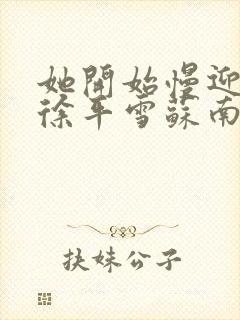 她開始慢迎
徐平雪蘇南
扶妹公子